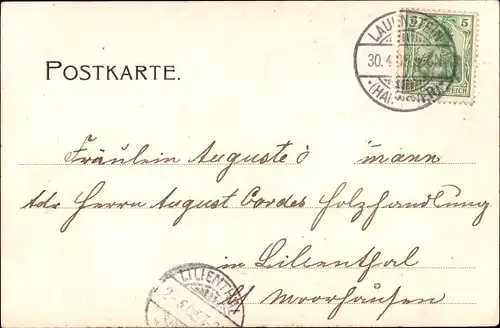 POSTKARTE.
LAUENSTEIN
30.4
(HANNOVER)
5
REICH
Fräulein Auguste
Adr Herrn August Cordes Holzhandlung
in Lilienthal
LILIENTHAL
bt Moorhausen